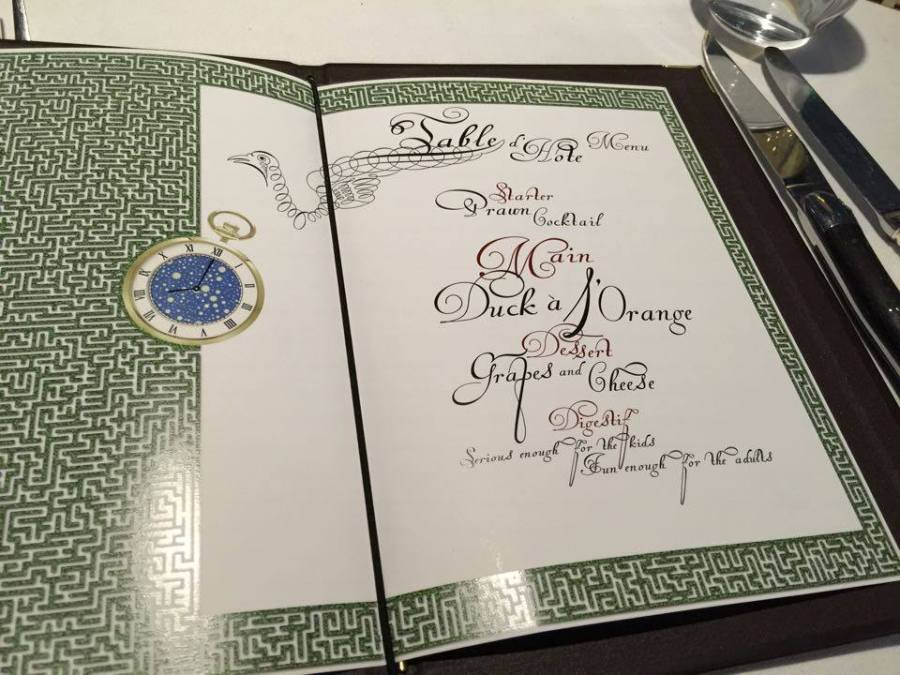 Table d'Hote Menu
Starter
Prawn Cocktail
Main
Duck à l'Orange
Dessert
Grapes and Cheese
Digestif
Serious enough for the kids
Fun enough for the adults
XII
I
II
III
IIII
V
VI
VII
VIII
IX
X
XI